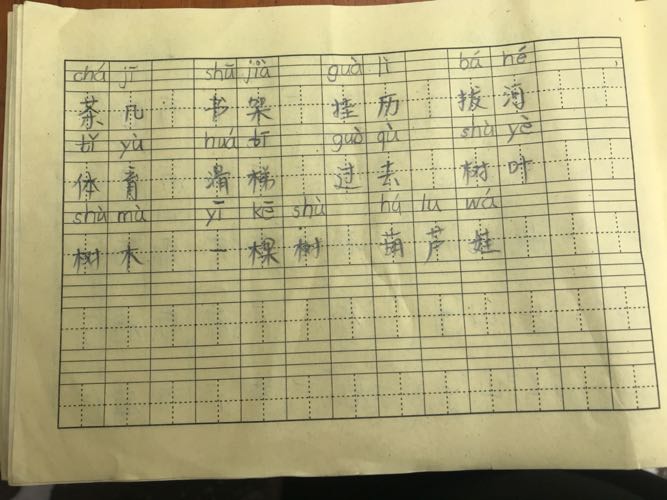 chá jī shū jià guà lì bá hé
茶 几 书 架 挂 历 拔 河
tǐ yù huá tī guò qù shù yè
体 育 滑 梯 过 去 树 叶
shù mù yī kē shù hú lu wá
树 木 一 棵 树 葫 芦 娃